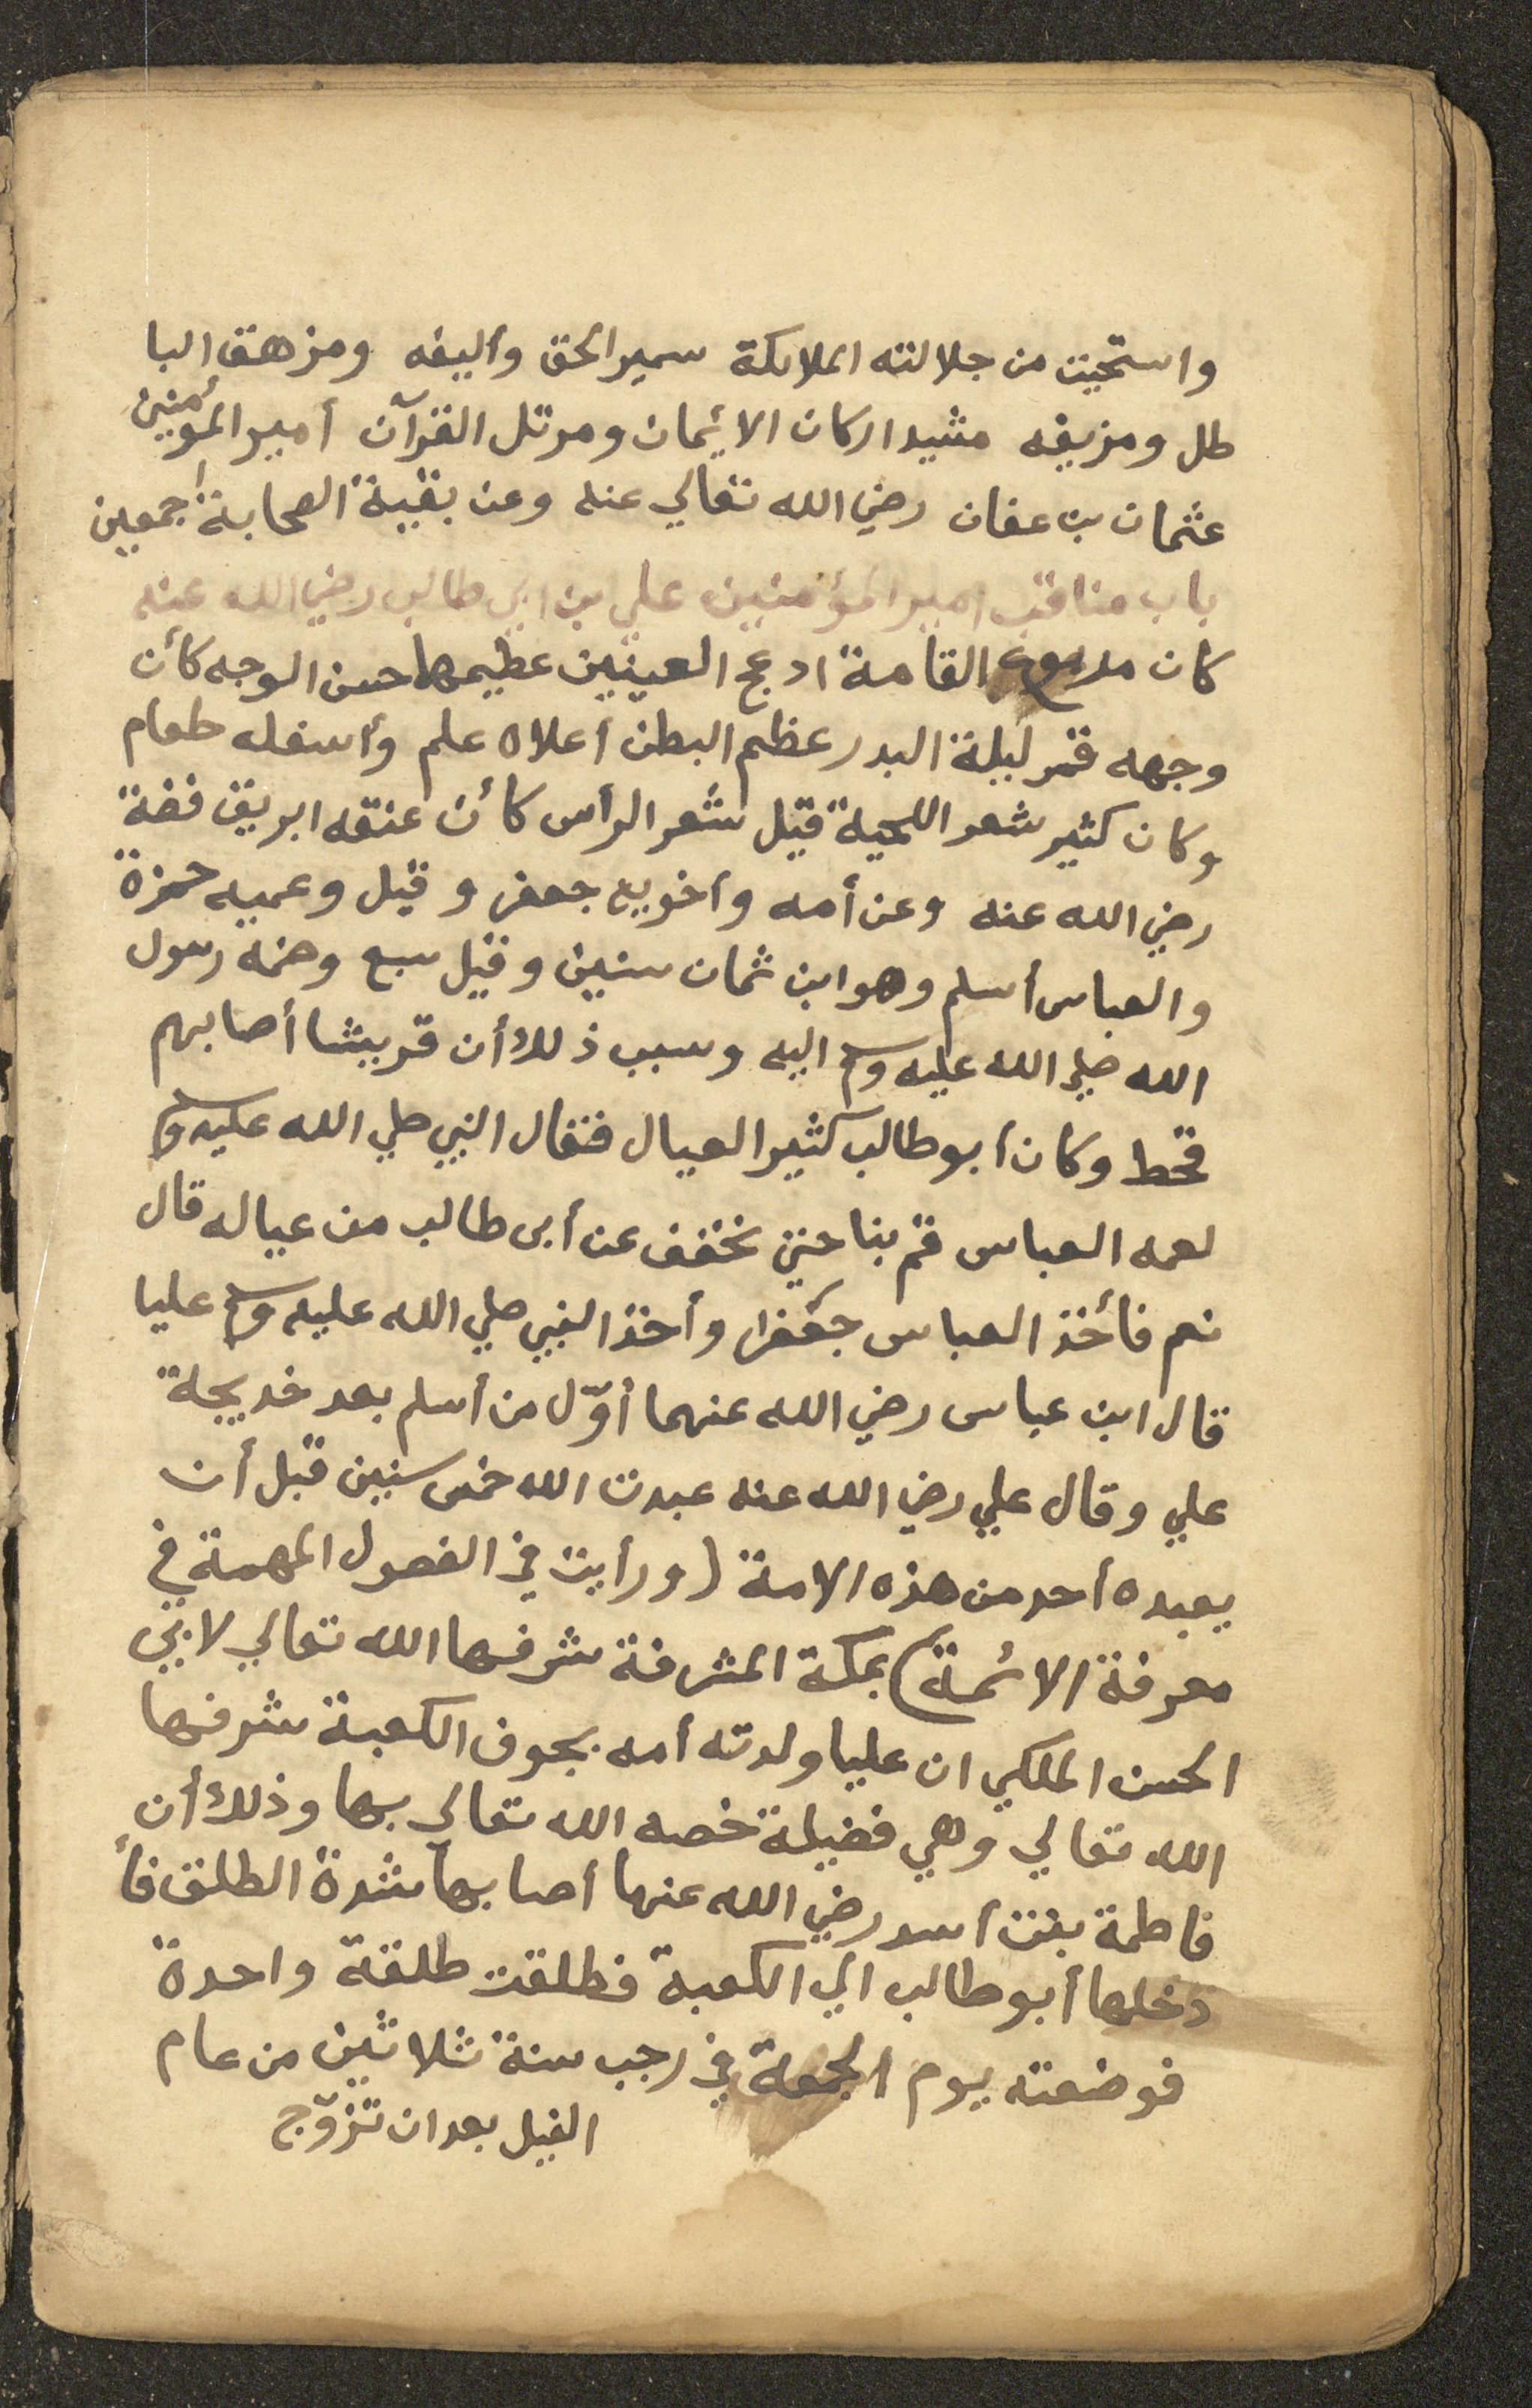 واستحيت من جلالته الملائكة سمير الحق وأليفه ومزهق البا
طل ومزيفه مشيد اركان الايمان ومرتل القرآن أمير المؤمنين
عثمان بن عفان رضي الله تعالي عنه وعن بقية الصحابة أجمعين
باب مناقب امير المؤمنين علي بن ابي طالب رضي الله عنه
كان مربوع القامة ادعج العينين عظيمها حسن الوجه كأن
وجهه قمر ليلة البدر عظم البطن أعلاه علم وأسفله طعام
وكان كثير شعر اللحية قيل شعر الرأس كأن عنقه ابريق فضة
رضي الله عنه وعن أمه وأخويه جعفر وقيل وعميه حمزة
والعباس أسلم وهو ابن ثمان سنين وقيل سبع وضمه رسول
الله صلي الله عليه وسلم اليه وسبب ذلك أن قريشا أصابهم
قحط وكان أبو طالب كثير العيال فقال النبي صلي الله عليه وسلم
لعمه العباس قم بنا حتي نخفف عن أبى طالب من عياله قال
نعم فأخذ العباس جعفرا وأخذ النبي صلي الله عليه وسلم عليا
قال ابن عباس رضي الله عنهما أوّل من أسلم بعد خديجة
علي وقال علي رضي الله عنه عبدت الله خمس سنين قبل أن
يعبده أحد من هذه الامة (ورأيت في الفصول المهمة في
معرفة الائمة) بمكة المشرفة شرفها الله تعالي لابي
الحسن الملكي ان عليا ولدته أمه بجوف الكعبة شرفها
الله تعالي وهي فضيلة خصه الله تعالي بها وذلك أن
فاطمة بنت اسد رضي الله عنها أصابها شدة الطلق فأ
دخلها أبو طالب الي الكعبة فطلقت طلقة واحدة
فوضعته يوم الجمعة في رجب سنة ثلاثين من عام
الفيل بعد ان تزوّج